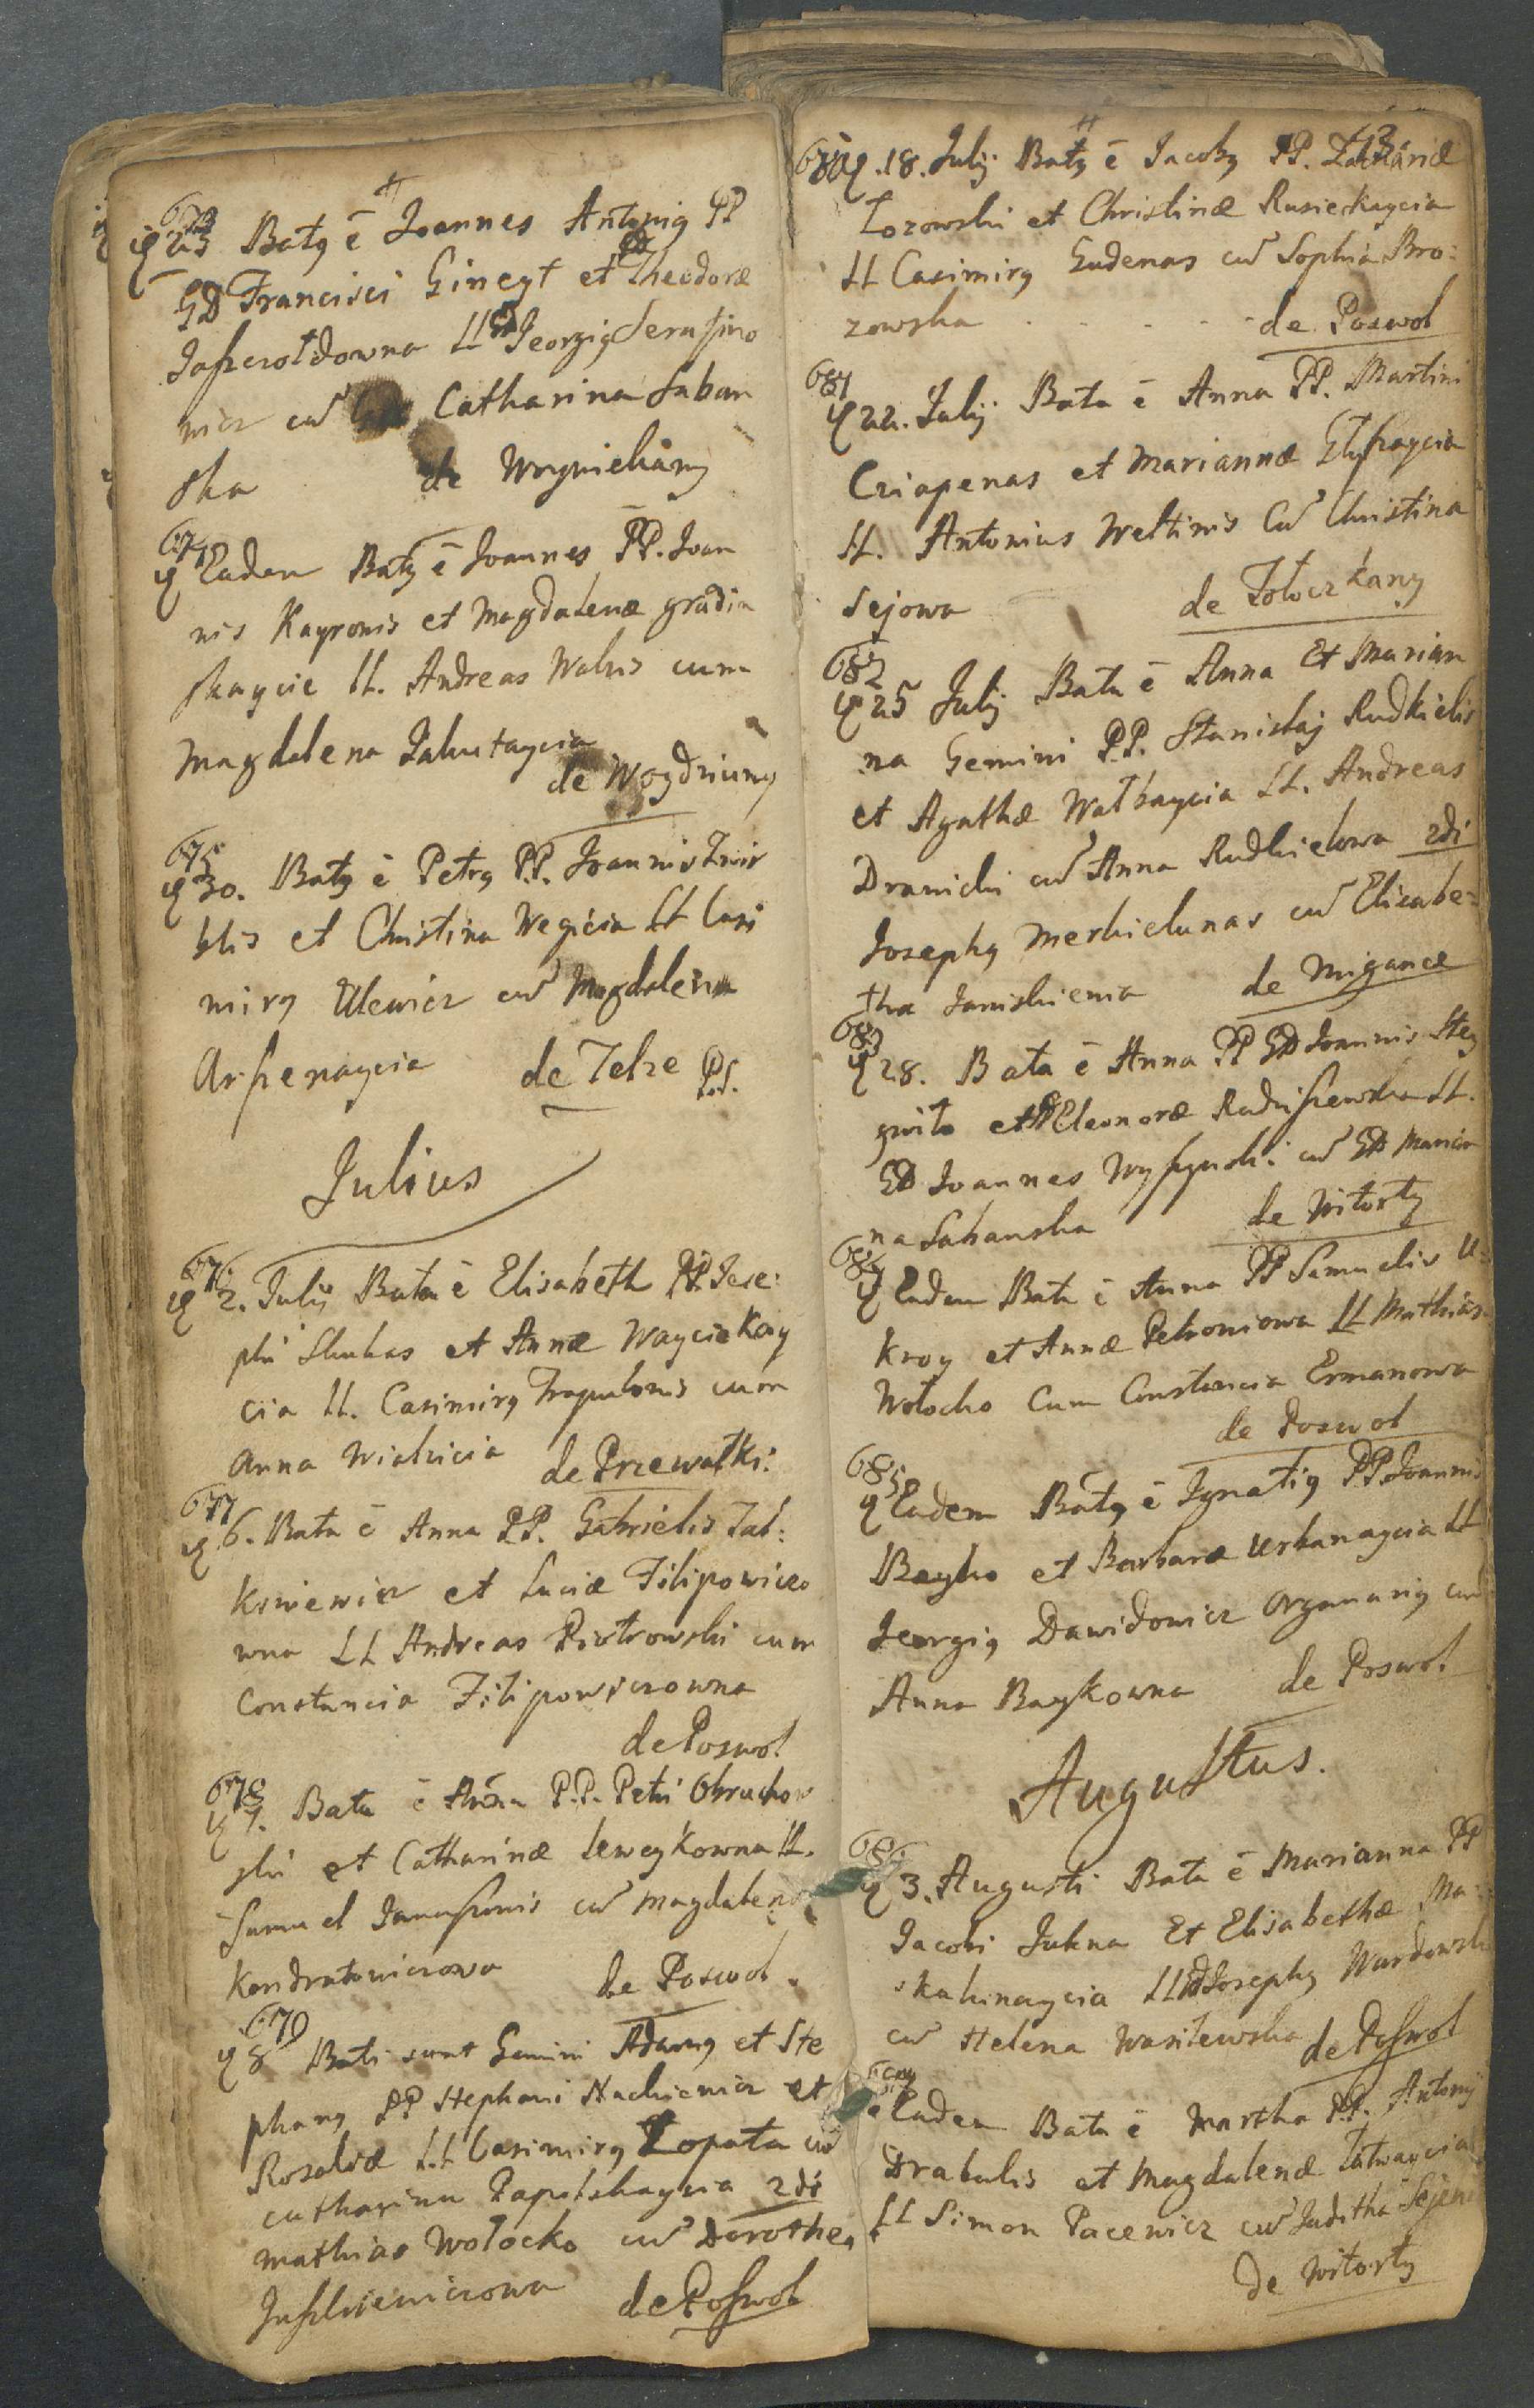 673
25 Batq ē Joannes Antonig PP
GD Francisci Gineyt et GD Theodoræ
Jaszczołdowna LL GD Georgig Serafino
wicz cū Catharina Saban
ska de Woyniekany
674
Eadem Batq ē Joannes PP. Joan
nis Kayronis et Magdalenæ gradin
skaycie LL. Andreas Walus cum
Magdalena Jakutaycia
de Woydziuny
675
30. Batq ē Petrq PP. Joannis Zwir
blis et Christina Wegicia LL Casi
mirq Ulewicz cū Magdalena
Arszenaycia de Telze PS.
Julius
676
2. Julij Bata ē Elisabeth PP. Jose:
phi Skukas et Annæ Wayciekay
cia LL. Casimirq Trapulonis cum
Anna Wialicia de Przewałki.
677
6. Bata ē Anna PP. Gabrielis Jat:
kowiewicz et Luciæ Filipowiczo
wna LL Andreas Piotrowski cum
Constancia Filipowiczowna
de Poswol
678
7. Bata ē Anna P.P. Petri Obruchow
ski et Catharinæ Leweykowna LL.
Samuel Januszonis cū Magdalena
Kondratowiczowa de Poswol.
679
8 Bati sunt Gemini Adamq et Ste
phanq PP Stephani Hackiewicz et
Rosaliæ LL Casimirq Łopata cū
Catharina Papelskaycia 2di
Mathias Wołocko cū Dorothea
Juszkiewiczowa de Poswol
43
680 18. Julij Batq ē Jacobq PP. Zachariæ
Łozowski et Christinæ Rusieckaycia
LL Casimirq Gudenas cū Sophia Bro:
zowska de Poswol
681
22. Julij Bata ē Anna PP. Martini
Cziapenas et Mariannæ
LL. Antonius Weltinis Cū Christina
Sejowa de Tołoczkany
682
25 Julij Bata ē Anna Et Marian
na Gemini P.P. Stanislaj Rudkielis
et Agathæ Wałkaycia LL. Andreas
Dranicki cū Anna Rudkielowa 2di
Josephq Merkielunas cū Elisabe:
tha Janiskienia de Migance
683
28. Bata ē Anna PP GD Joannis Stey
gwiło et GD Eleonoræ Raduszewska LL.
GD Joannes Wyszynski cū GD Marian
na Sabanska de Witorty
684
Eadem Bata ē Anna PP Samuelis U=
kroy et Annæ Petroniowa LL Mathias
Wołocko Cum Constancia Ermanowa
de Poswol
685
Eadem Batq ē Ignatig PP Joannis
Bayko et Barbaræ Urbanaycia LL
Georgig Dawidowicz Organarig cum
Anna Baykowna de Poswol
Augustus.
686
3. Augusti Bata ē Marianna PP
Jacobi Jukna Et Elisabethæ Ma:
skalunaycia LL GD Josephq Wardowski
cū Helena Wasilewska de Poswol
687
Eadem Bata ē Martha PP. Antonij
Drabulis et Magdalenæ Łatwaycia
LL Simon Pacewicz cū Juditha Sejen
de Witorty